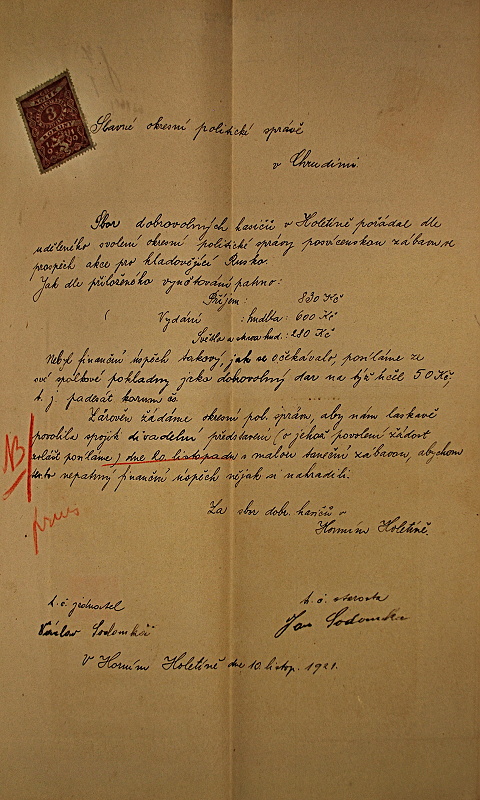 Slavné okresní politické správě
v Chrudimi.
Sbor dobrovolných hasičů v Holetíně pořádal dle
uděleného svolení okresní politické správy posvícenskou zábavu ve
prospěch akce pro hladovějící Rusko.
Jak dle přiloženého vyúčtování patrno:
Příjem: 830 Kč
Vydání: hudba: 600 Kč
Světlo a strava hud.: 280 Kč
Nebyl finanční úspěch takový, jak se očekávalo, posíláme ze
své spolkové pokladny jako dobrovolný dar na týž účel 50 Kč,
t. j. padesát korun čs.
Zároveň žádáme okresní pol. správu, aby nám laskavě
povolila spojit divadelní představení (o jehož povolení žádost
zvlášť posíláme) dne 20. listopadu s malou taneční zábavou, abychom
tento nepatrný finanční úspěch nějak si nahradili.
NB
Za sbor dobr. hasičů v
Horním Holetíně.
t. č. jednatel
t. č. starosta
Václav Sodomka
Jan Sodomka
V Horním Holetíně dne 10. listop. 1921.